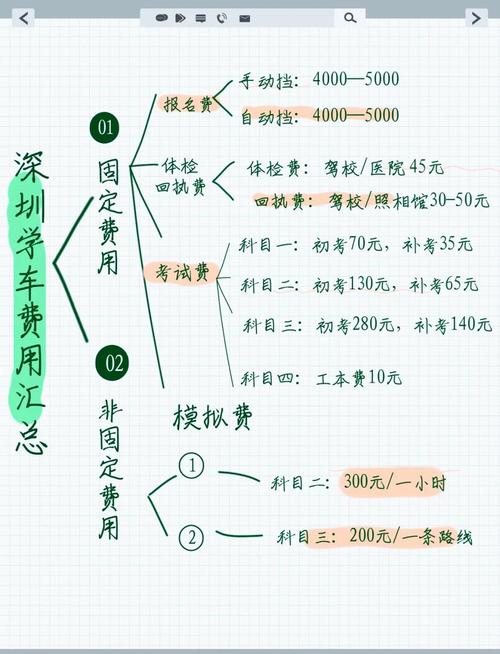 深圳学车费用汇总
01
固定费用
报名费
手动挡：4000—5000
自动挡：4000—5000
体检
回执费
体检费：驾校/医院45元
回执费：驾校/照相馆30-50元
考试费
科目一：初考70元，补考35元
科目二：初考130元，补考65元
科目三：初考280元，补考140元
科目四：工本费10元
02
非固定费用
模拟费
1
科目二：300元/一小时
2
科目三：200元/一条路线